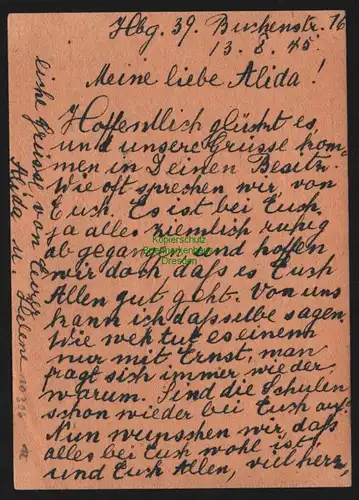 Hbg. 39. Buchenstr. 16
13. 8. 45
Meine liebe Alida!
Hoffentlich glückt es,
und unsere Grüsse kom-
men in Deinen Besitz.
Wie oft sprechen wir, von
Euch. Es ist bei Euch
ja alles ziemlich ruhig
ab gegangen, und hoffen
wir doch, daß es Euch
Allen gut geht. Von uns
kann ich dasselbe sagen.
Wie weh tut es einem
nur mit Ernst, man
fragt sich immer wieder
warum. Sind die Schulen
schon wieder bei Euch auf?
Nun wünschen wir, daß
alles bei Euch wohl ist
und Euch Allen, viel herz-
liche Grüsse von Eurer
Alida u Helene
Kopierschutz
Dresden